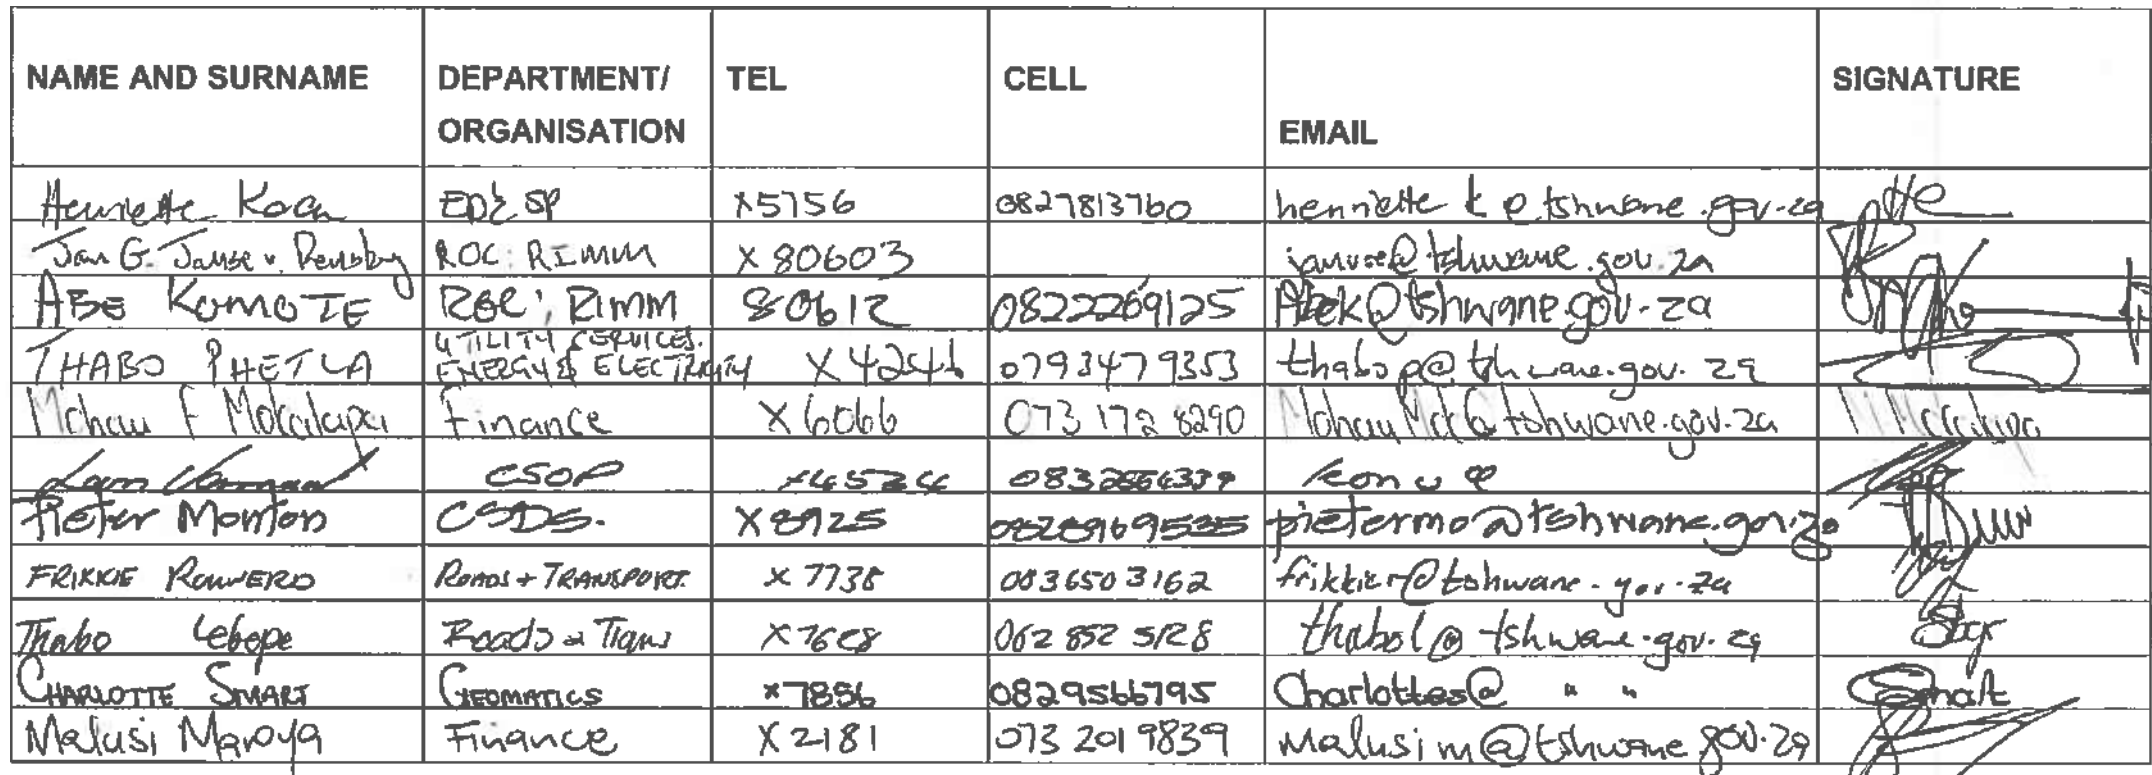 NAME AND SURNAME DEPARTMENT/ ORGANISATION TEL CELL EMAIL SIGNATURE
Henriette Koch ED&SP x5756 0827813760 henriette k@tshwane.gov.za
Jan G. Janse v. Rensburg ROC: RIMM x 80603 @tshwane.gov.za
ABE KOMOTE ROC, RIMM 80612 0822269125 Abek@tshwane.gov.za
THABO PHETLA UTILITY SERVICES. ENERGY & ELECTRICITY X 4246 0793479353 thabop@tshwane.gov.za
Mohau F Mokalapa Finance X 6066 073 172 8290 MohauMok@tshwane.gov.za
CSOP
Pieter Monton CSDS. X8925 pietermo@tshwane.gov.za
FRIKKIE ROUWERD ROADS + TRANSPORT. x 7738 0836503162 frikkier@tshwane.gov.za
Thabo Lebope Roads & Trans X7628 062 852 5128 thabol@tshwane.gov.za
CHARLOTTE SMART GEOMATICS x7856 0829566795 Charlottes@ " " Smart
Malusi Maroya Finance X2181 073 201 9839 Malusim@tshwane gov.za